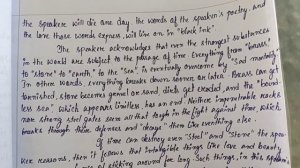 the speaker will die one day, the words of the speaker's poetry, and
the love those words express, will live on in "black ink".
The speaker acknowledges that even the strongest substances
in the world are subject to the passage of time. Everything from "brass,"
to "stone" to "earth," to the "sea", is eventually overcome by "Sad mortality".
In other words, everything breaks down sooner or later. Brass can get
tarnished, stone becomes gravel or sand, dirt gets eroded, and the
less sea", which appears limitless, has an end. Neither impregnable rocks
nor strong steel gates seem all that tough in the fight against time, which
breaks through these defenses and "decays" them like everything else.
If time can destroy even "Steel" and "Stone" the
reasons, then it follows that intangible things like love and beauty
of sticking around for long. Such things, in this